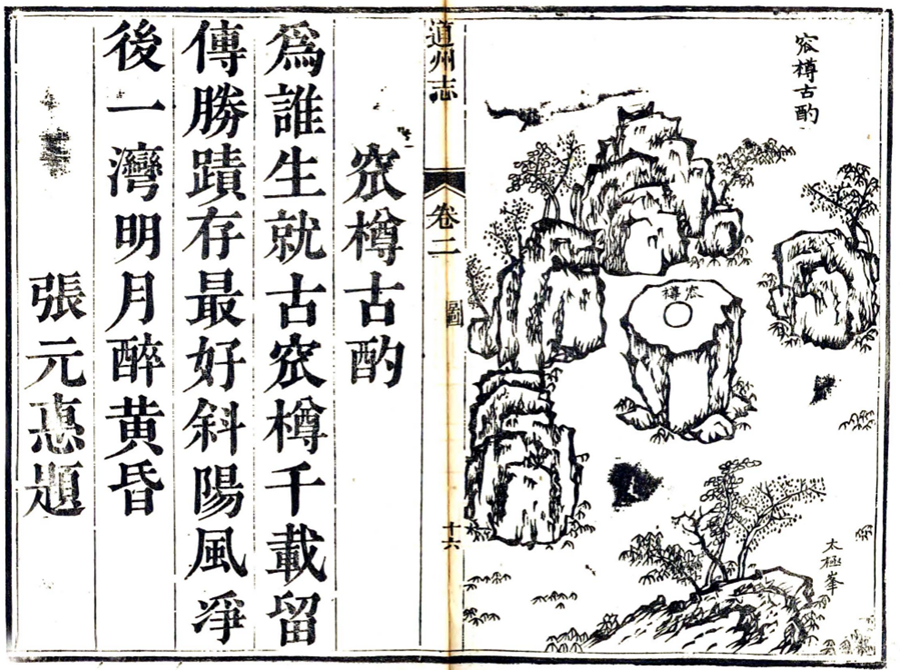 窊樽古酌
窊樽
太極峯
道州志
卷二
圖
十六
窊樽古酌
爲誰生就古窊樽千載留
傳勝蹟存最好斜陽風凈
後一灣明月醉黄昏
張元惠題